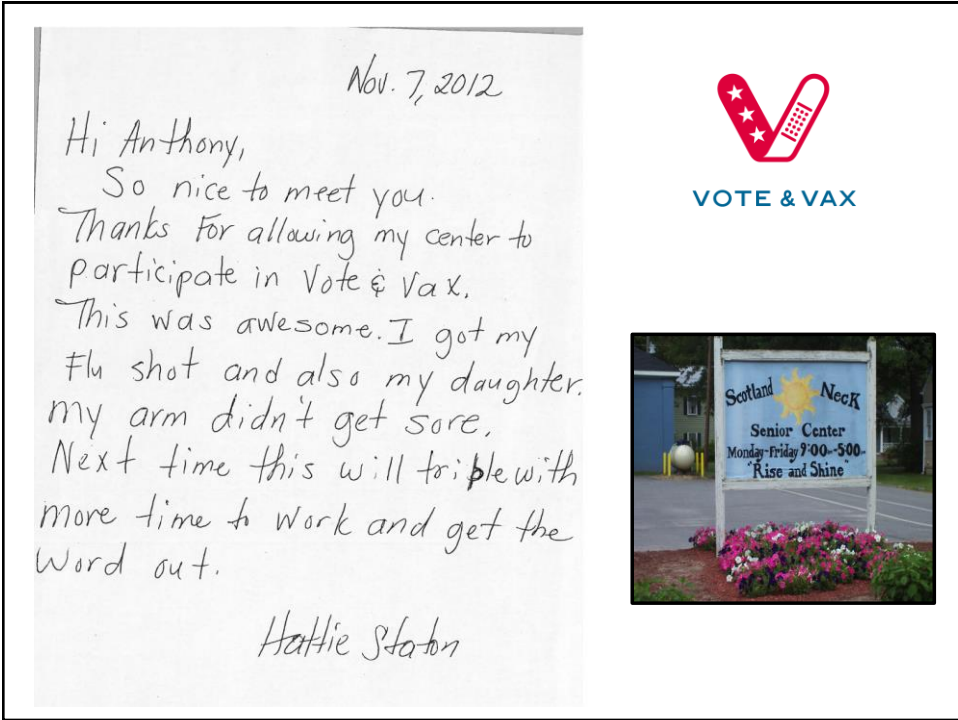 Nov. 7, 2012
Hi Anthony,
So nice to meet you.
Thanks For allowing my center to
participate in Vote & Vax.
This was awesome. I got my
Flu shot and also my daughter.
my arm didn't get sore.
Next time this will triple with
more time to work and get the
word out.
Hattie Staton
VOTE & VAX
Scotland Neck
Senior Center
Monday-Friday 9:00am-5:00pm
"Rise and Shine"